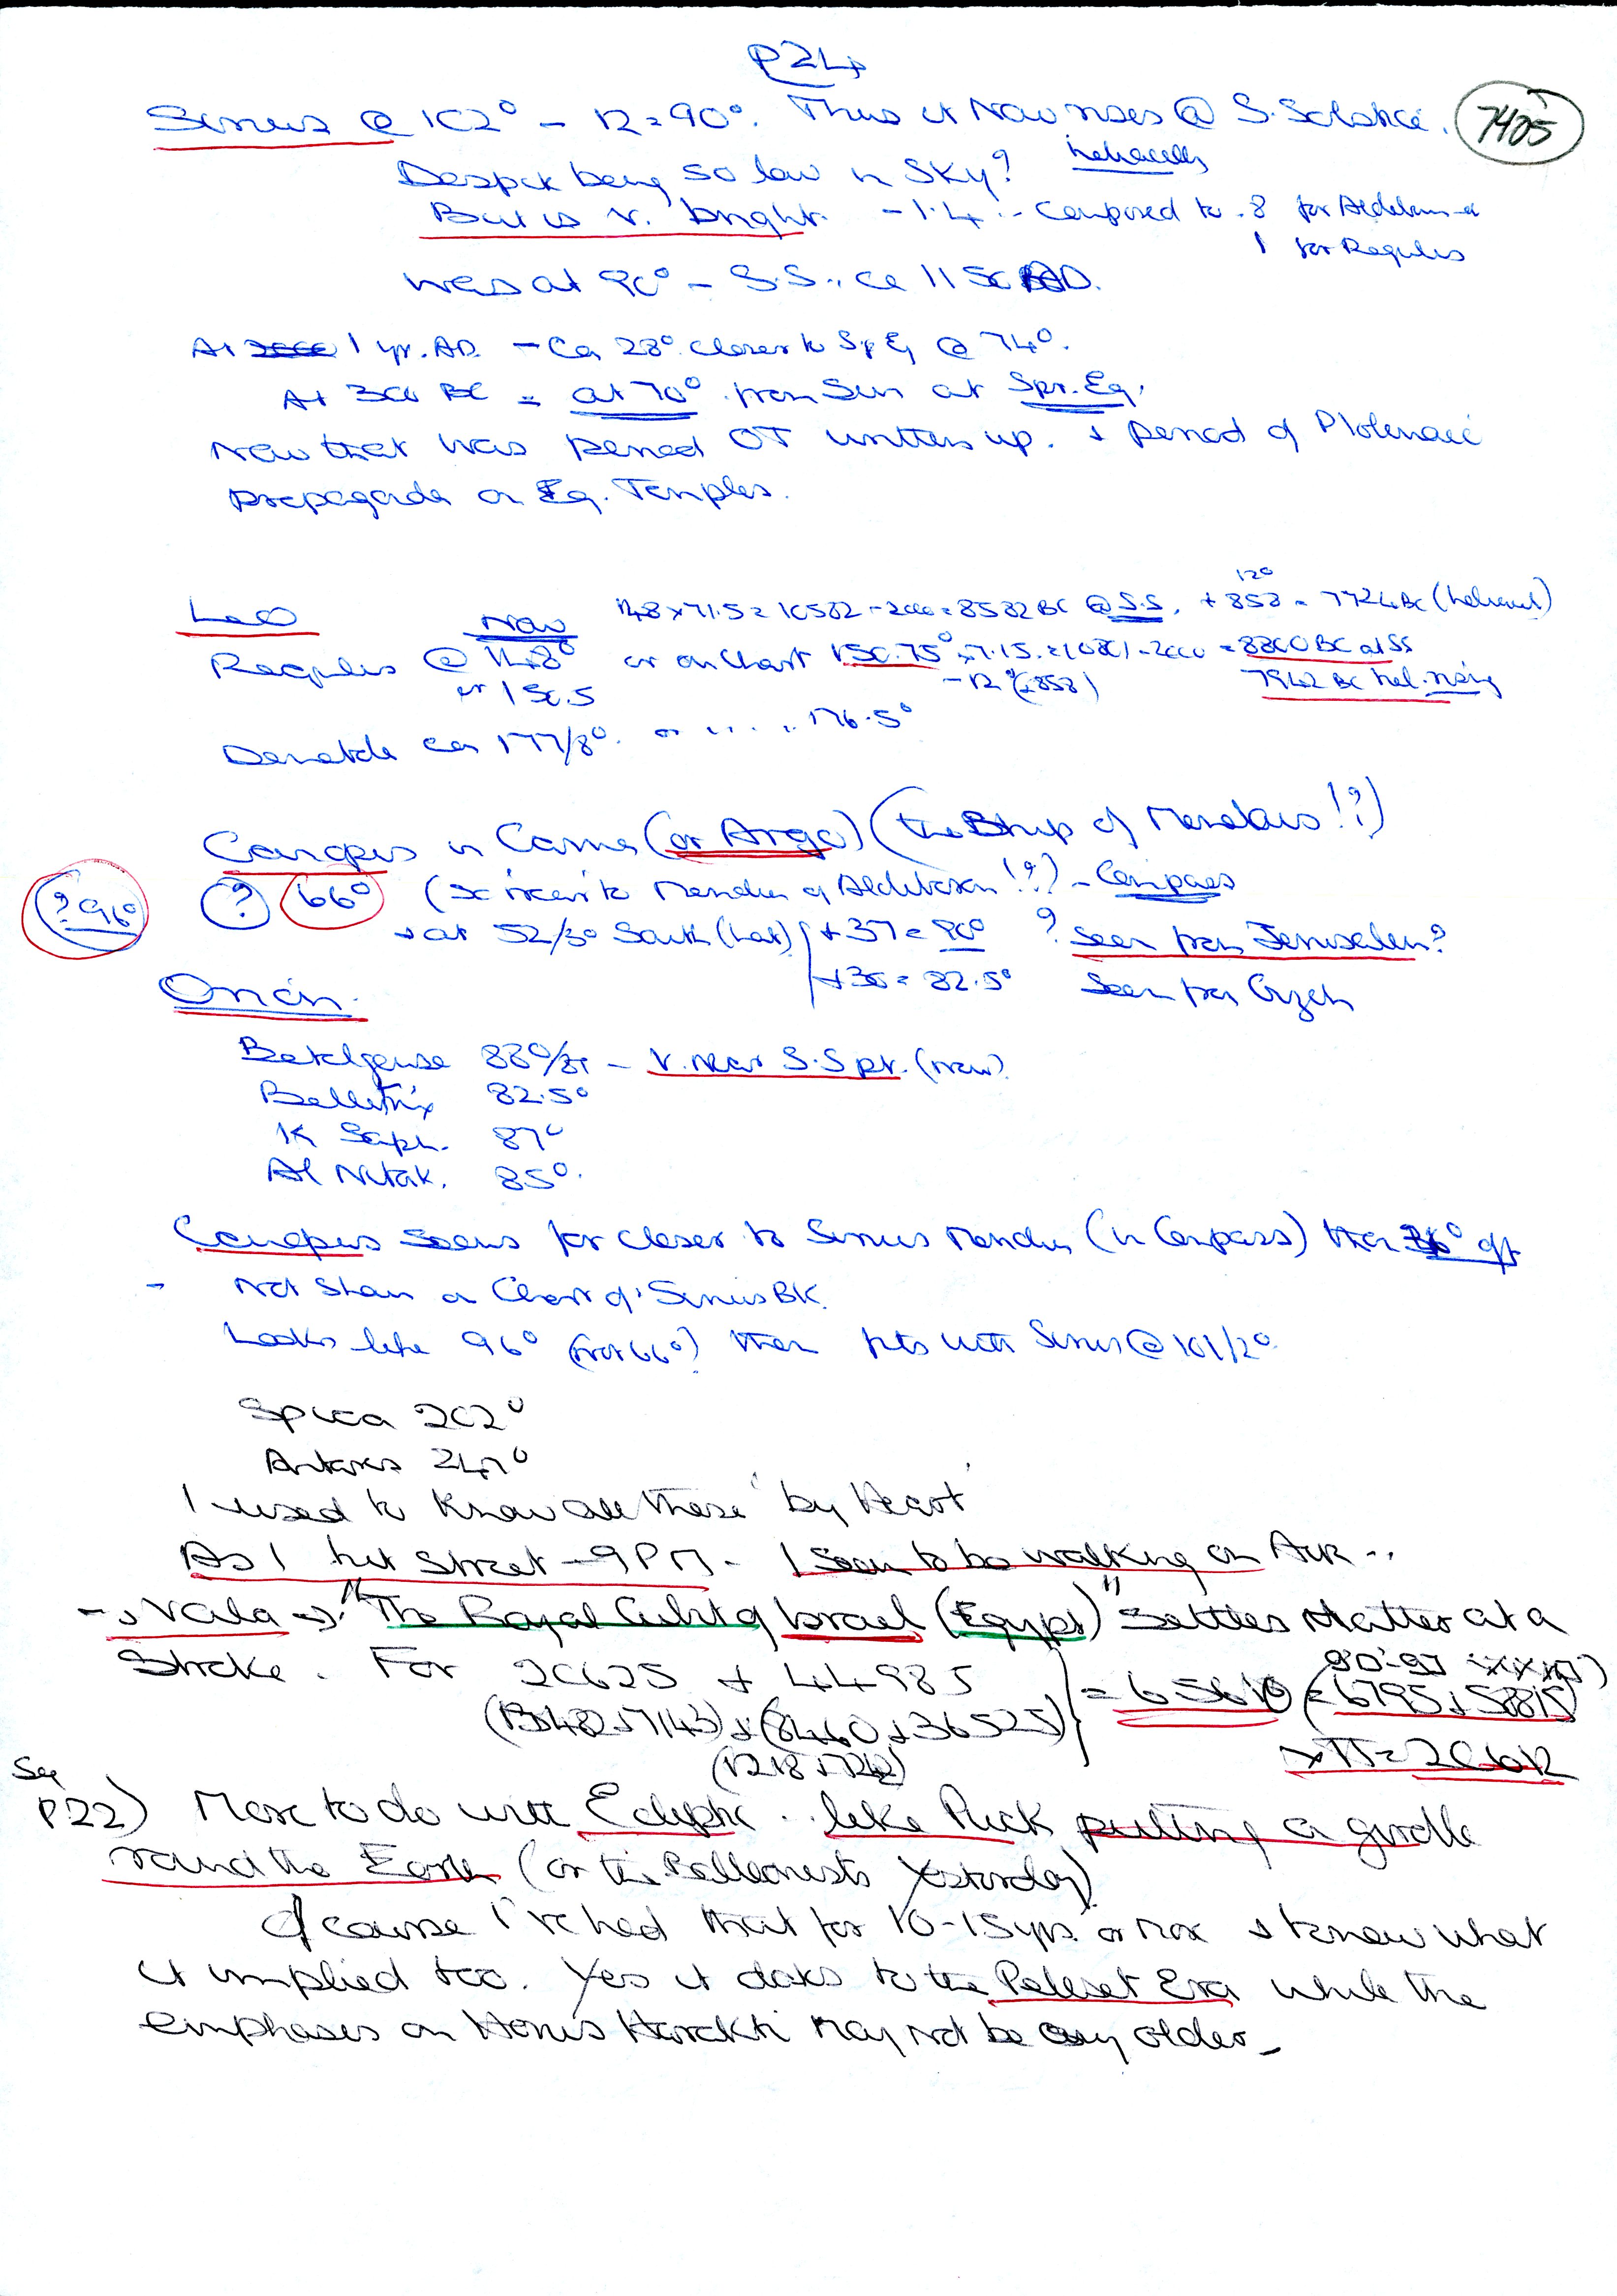 P24
Sirius @ 102° - 12 = 90°. Thus it Now rises @ S. Solstice.
7405
heliacally
Despite being so low in Sky?
But is v. bright. -1.4 :- Compared to .8 for Aldebaran -
1 for Regulus
Was at 90° - S.S., ca 1150 AD.
At 1 yr. AD. - Ca 28° closer to Sp Eq @ 74°.
At 300 BC = at 70° from Sun at Spr. Eq.
Now that was period OT written up. + period of Ptolemaic
propaganda on Eg. Temples.
12°
Leo Now 148 x 71.5 = 10582 - 2000 = 8582 BC @ S.S, + 858 = 7724 BC (heliacal)
Regulus @ 148° or on Chart 150.75° x 7.15 = 10801 - 2000 = 8800 BC at SS
or 150.5 - 12° (858) 7942 BC hel. rising
Denebola ca 177/8° or .... 176.5°
Canopus in Carina (or Argo) (the Ship of Menelaus!?)
?96° ? 66° (so near to Meridian of Aldebaran!?) - Compass
+ at 52/3° South (Lat) + 37 = 90° ? Seen from Jerusalem?
+ 30 = 82.5° Seen from Gizeh
Orion.
Betelgeuse 88°/89 - V. near S.S pt. (now)
Bellatrix 82.5°
K Saiph. 87°
Al Nitak. 85°.
Canopus seems far closer to Sirius Meridian (in Compass) than 36° off
- Not shown on Chart of Sirius BK.
Looks like 96° (not 66°) then fits with Sirius @ 101/2°.
Spica 202°
Antares 247°
I used to Know all these 'by Heart'
As I hit street - 9 PM - I seem to be walking on Air ..
- Vala => "The Royal Cubit of Israel (Egypt)" Settles Matter at a
Stroke. For 20625 + 44985 } = 65610 (= 6795 + 58815)
(13482 + 7143) + (8460 + 36525)
(1218 + 7242) x π = 20612
See
P22) More to do with Ecliptic .. like Puck putting a girdle
round the Earth (or the Balloonists Yesterday)
Of course I've had that for 10-15 yrs. or more & knew what
it implied too. Yes it dates to the Peleset Era while the
emphases on Horus Harakhti may not be any older -